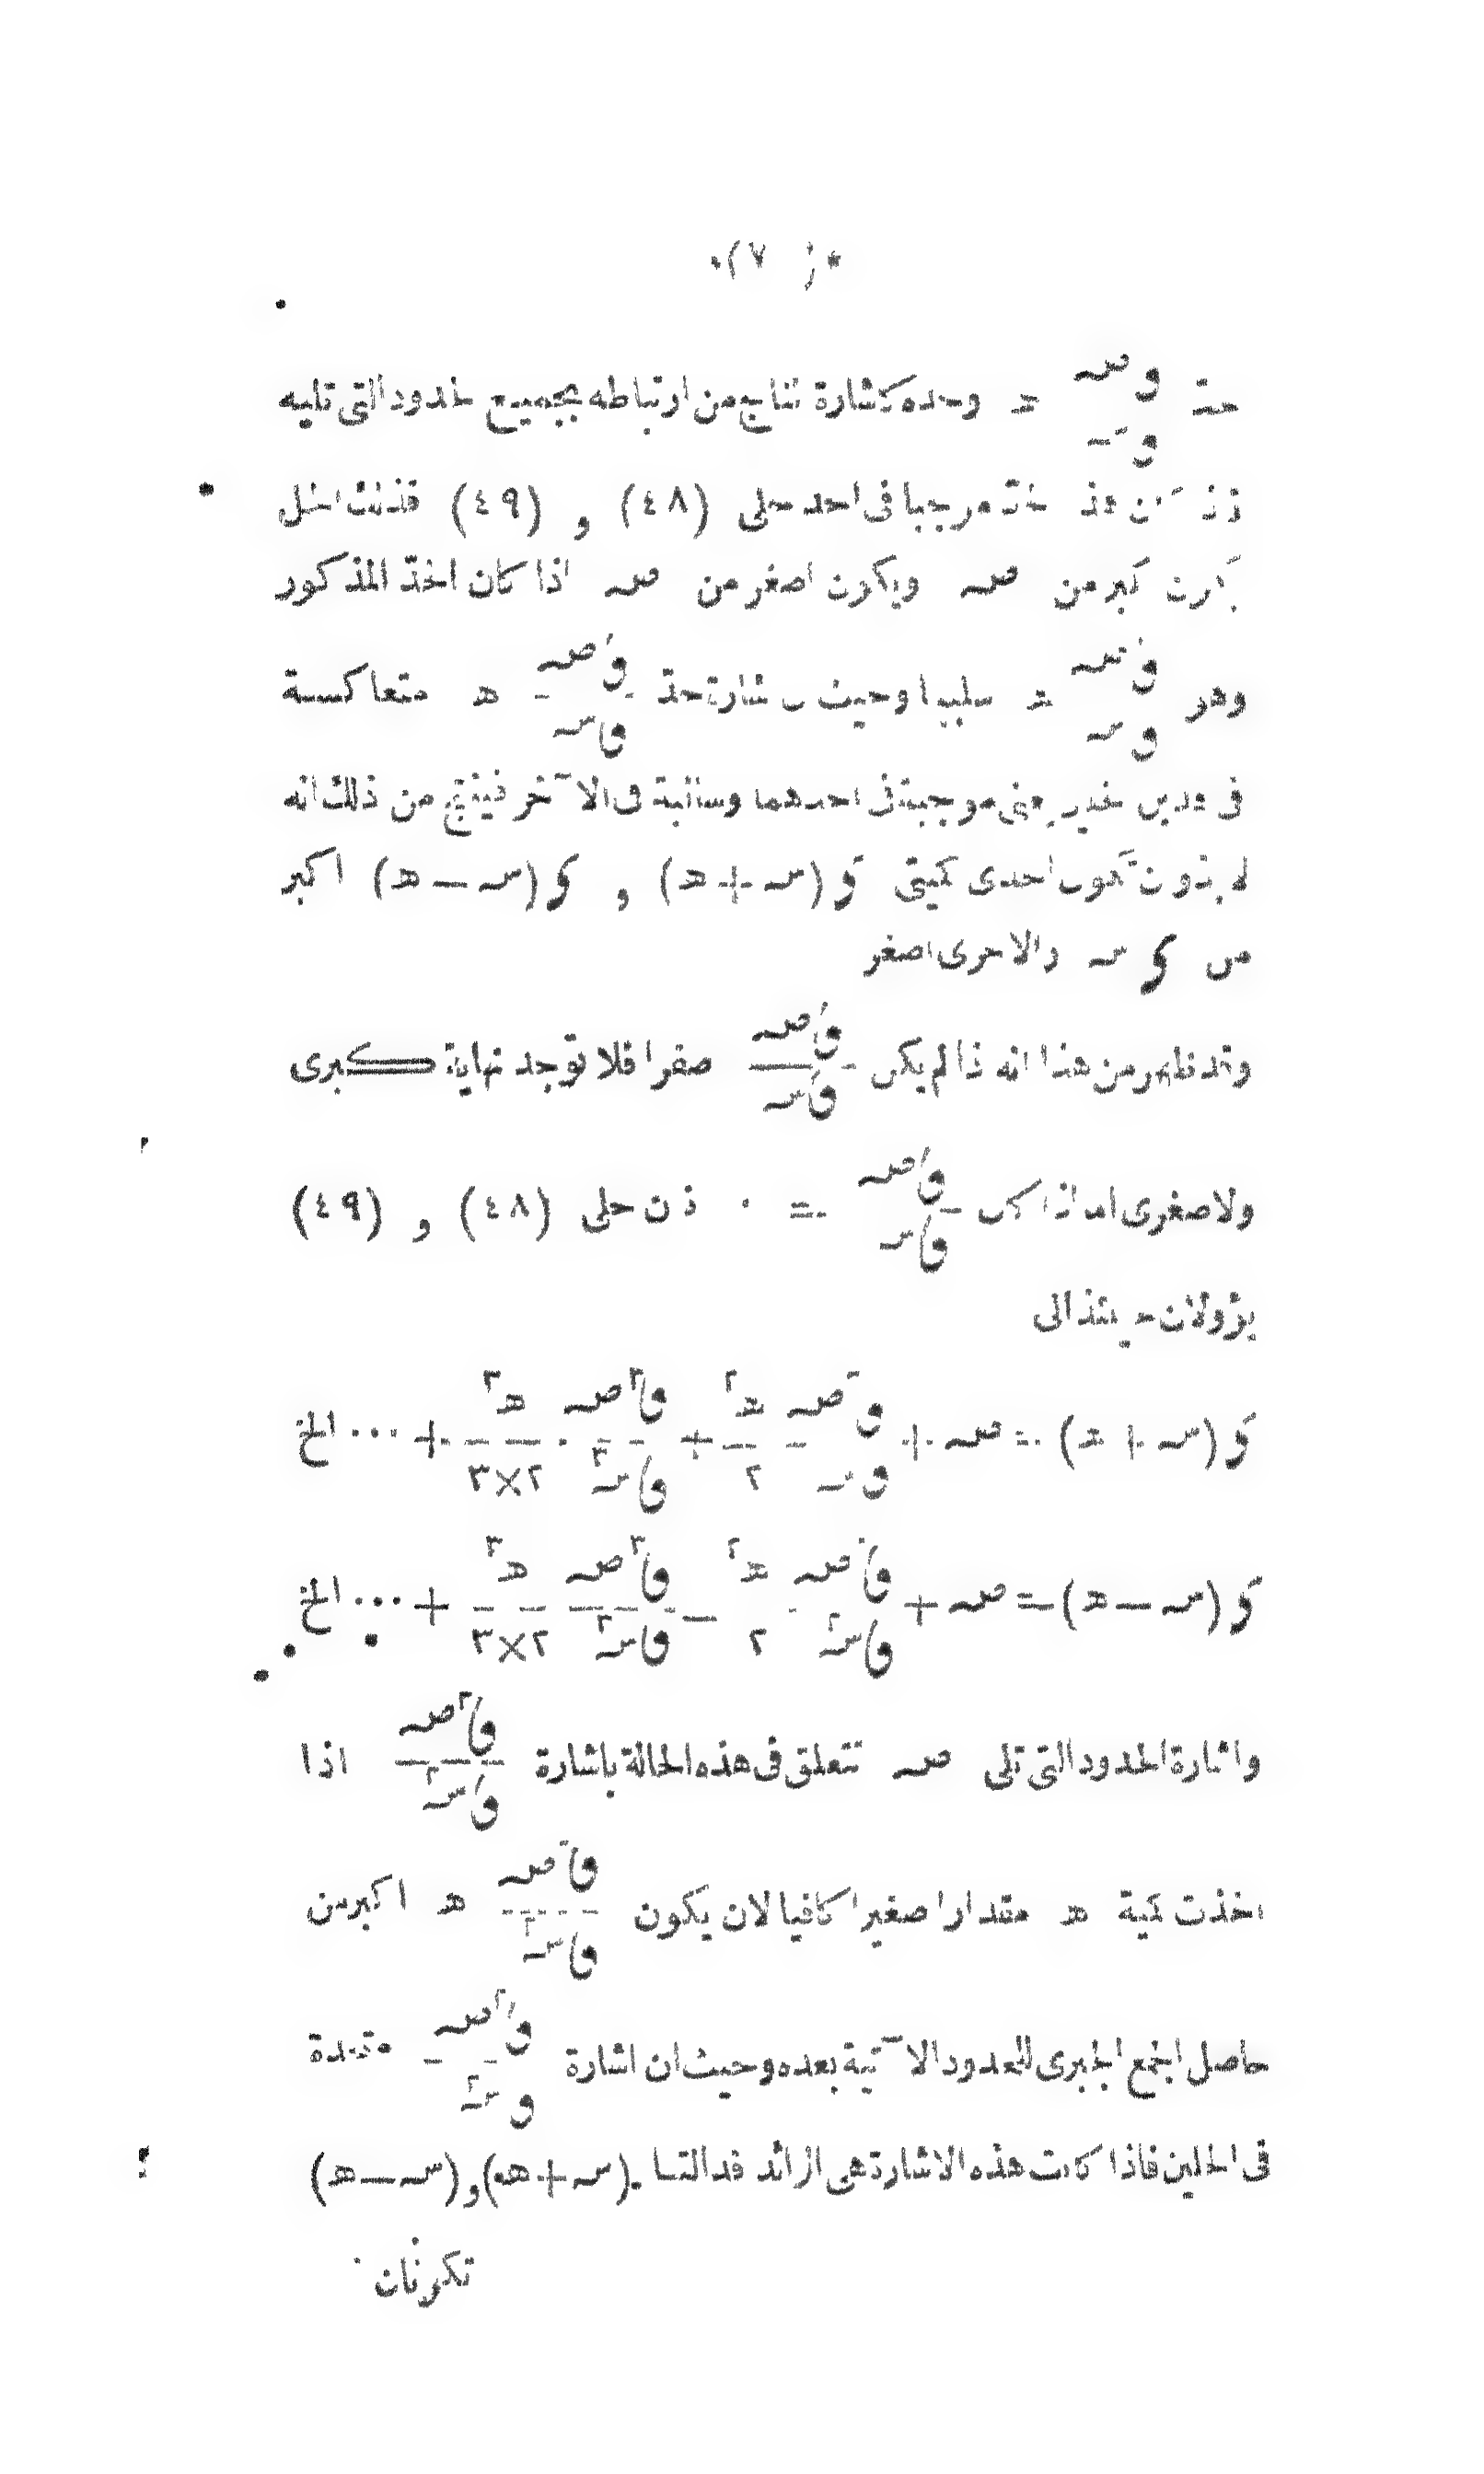 (٧ )
حد وَصـ/وَسـ هـ وحده كاشارة تنتاج من ارتباطه بجميع الحدود التى تليه
هذا موجبا فى احد حلى (٤٨) و (٤٩) فذلك الحل
يكون اكبر من صـ ويكون اصغر من صـ اذا كان الحدّ المذكور
وهو وَصـ/وَسـ هـ سلبيا وحيث اشارة حدّ وَصـ/وَسـ هـ متعاكسة
فى يعنى موجبة فى احدهما وسالبة فى الآخر فينتج من ذلك انه
لابد ان تكون احدى كميتى كَـ(سـ+هـ) و كَـ(سـ−هـ) اكبر
من كـ سـ والاخرى اصغر
وقد ظهر من هذا انه اذا لم يكن وَصـ/وَسـ صفرا فلا توجد نهاية كبرى
ولا صغرى اما اذا كان وَصـ/وَسـ = ٠ فان حلى (٤٨) و (٤٩)
يؤولان حينئذ الى
كَـ(سـ+هـ)=صـ+وَ٢صـ/وَسـ٢ هـ٢/٢+وَ٣صـ/وَسـ٣ هـ٣/٢×٣+... الخ
كَـ(سـ−هـ)=صـ+وَ٢صـ/وَسـ٢ هـ٢/٢−وَ٣صـ/وَسـ٣ هـ٣/٢×٣+... الخ
واشارة الحدود التى تلى صـ تتعلق فى هذه الحالة باشارة وَ٢صـ/وَسـ٢ اذا
اخذت كمية هـ مقدارا صغيرا كافيا لان يكون وَ٢صـ/وَسـ٢ هـ اكبر من
حاصل الجمع الجبرى للحدود الآتية بعده وحيث ان اشارة وَ٢صـ/وَسـ٢ متحدة
فى الحلين فاذا كانت هذه الاشارة هى الزائد فدالتا (سـ+هـ) و(سـ−هـ)
تكونان